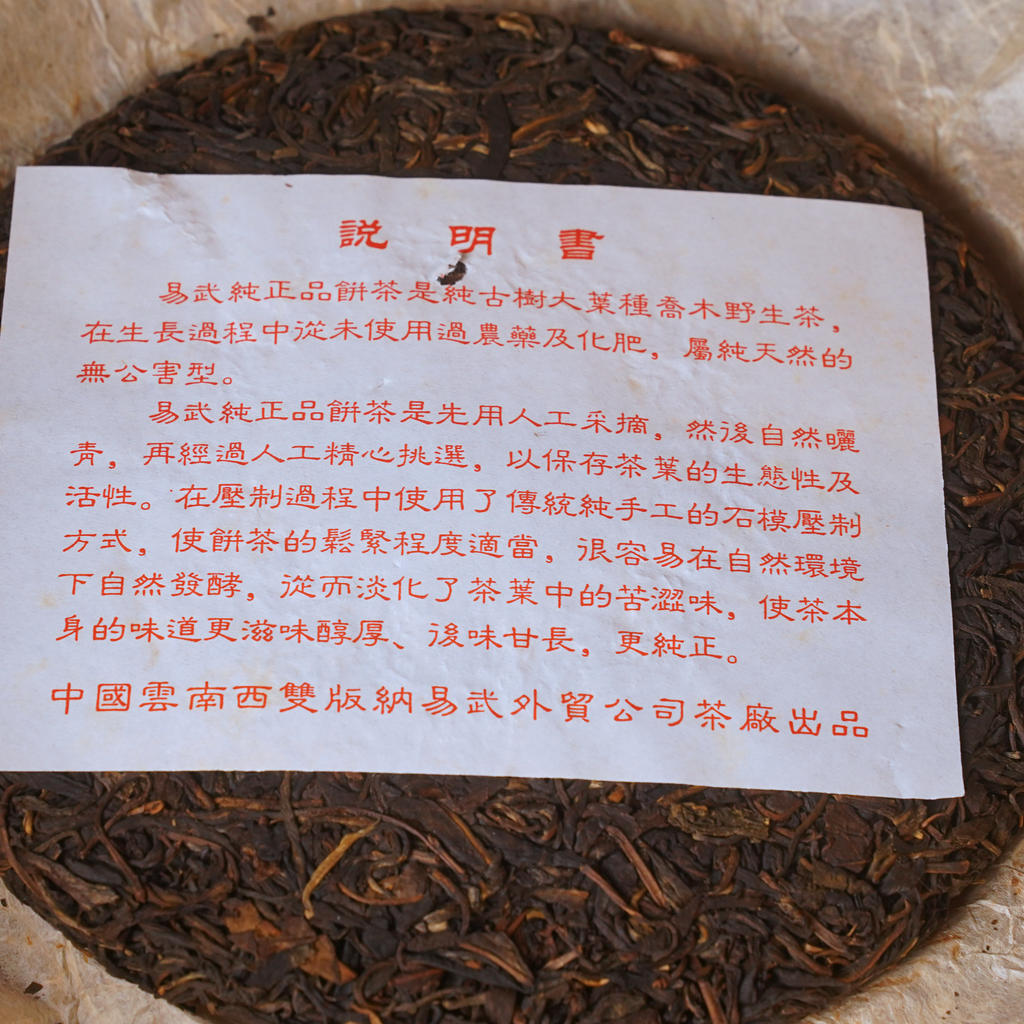 説明書
易武純正品餅茶是純古樹大葉種喬木野生茶，
在生長過程中從未使用過農藥及化肥，屬純天然的
無公害型。
易武純正品餅茶是先用人工采摘，然後自然曬
青，再經過人工精心挑選，以保存茶葉的生態性及
活性。在壓制過程中使用了傳統純手工的石模壓制
方式，使餅茶的鬆緊程度適當，很容易在自然環境
下自然發酵，從而淡化了茶葉中的苦澀味，使茶本
身的味道更滋味醇厚、後味甘長，更純正。
中國雲南西雙版納易武外貿公司茶廠出品